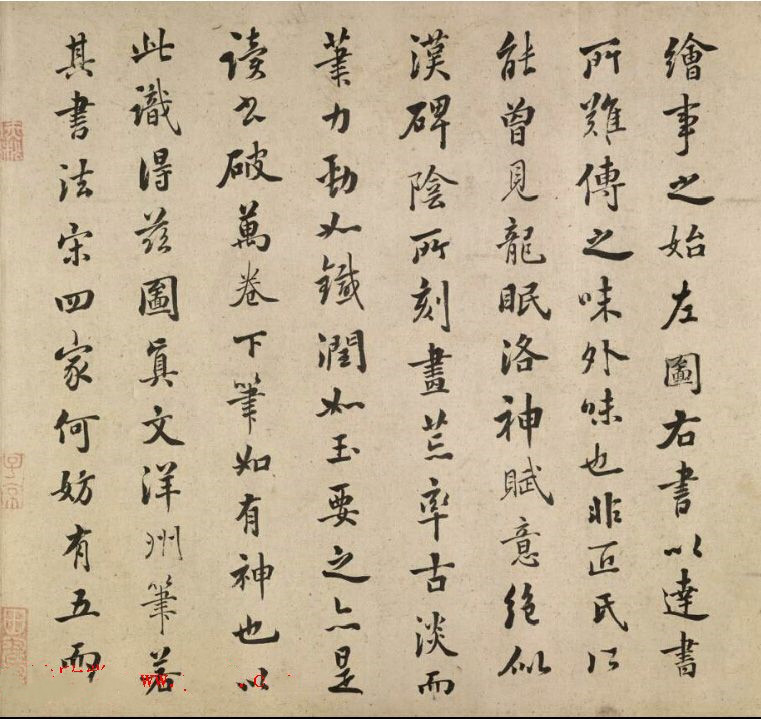 繪事之始左圖右書以達書
所難傳之味外味也非匠氏所
能曾見龍眠洛神賦意絕似
漢碑陰所刻畫荒率古淡而
筆力勁如鐵潤如玉要之亦是
讀書破萬卷下筆如有神也以
此識得茲圖真文洋州筆若
其書法宋四家何妨有五而